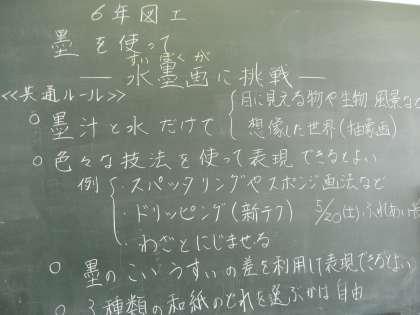 6年図工
墨を使って
すいぼくが
― 水墨画に挑戦 ―
≪共通ルール≫
○墨汁と水だけで
目に見える物や生物 風景など
想像した世界(抽象画)
○色々な技法を使って表現できるとよい
例 ・スパッタリングやスポンジ画法など
・ドリッピング(新テク) 5/20(土)ふれあい
・わざとにじませる
○墨のこい うすいの差を利用して表現できるとよい
○3種類の和紙のどれを選ぶかは自由